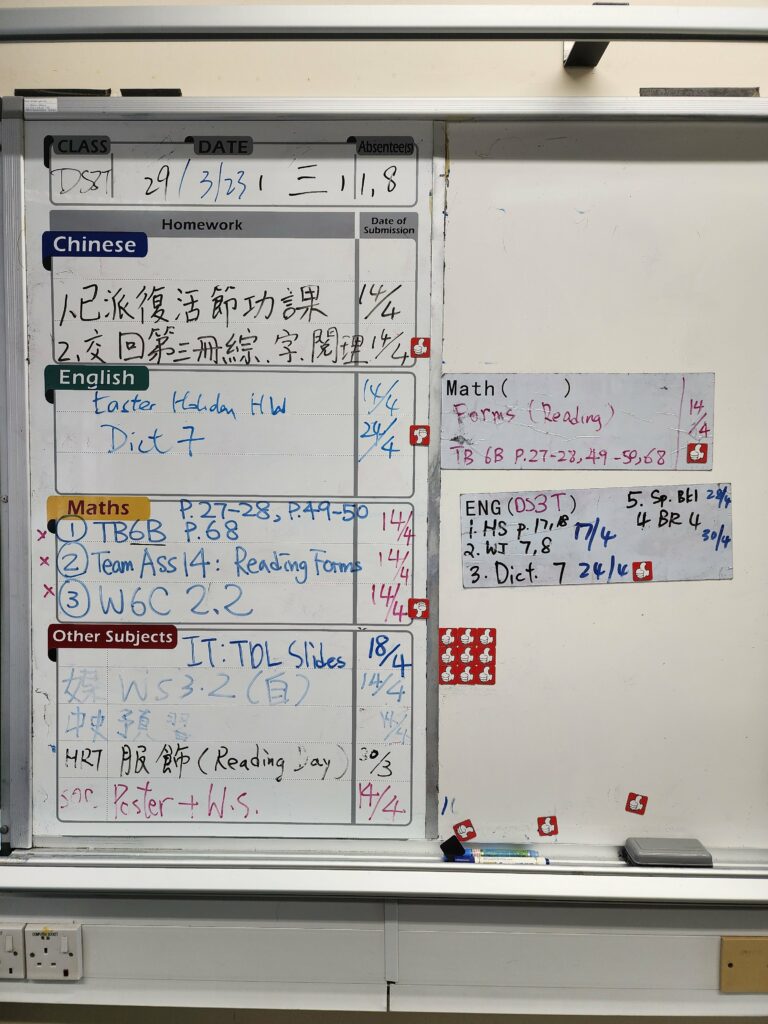 CLASS DATE Absentee(s)
29/3/23, 三, 1, 8
Homework Date of Submission
Chinese
1.已派復活節功課 14/4
2.交回第三冊綜、字、閱理 14/4
English
Easter Holiday HW 14/4
Dict 7 24/4
Maths P.27-28, P.49-50
× ① TB6B P.68 14/4
× ② Team Ass 14: Reading Forms 14/4
× ③ W6C 2.2 14/4
Other Subjects IT: TDL Slides 18/4
WS3.2(自) 14/4
中史預習 14/4
HRT 服飾(Reading Day) 30/3
Poster + W.S. 14/4
Math( )
Forms (Reading) 14/4
TB 6B P.27-28, 49-50, 68
ENG(DS3T) 5. Sp. Bk1 28/4
1. HS p.17, 18 17/4
4 BR 4 30/4
2. WJ 7, 8
3. Dict. 7 24/4